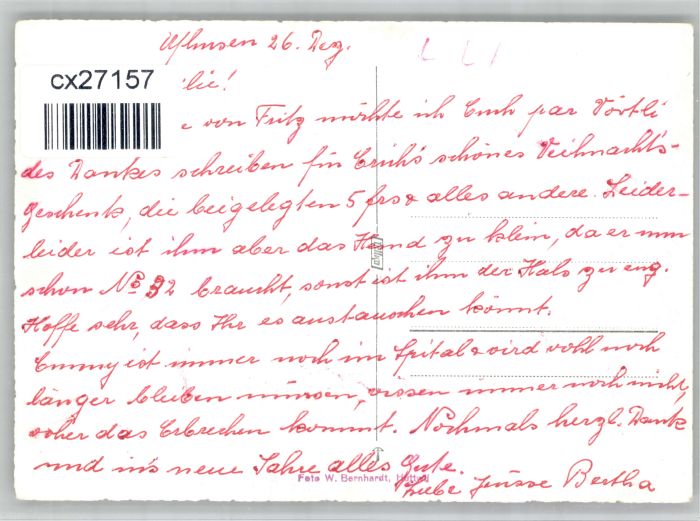 Ufhusen 26. Dez.
cx27157
lie!
e von Fritz möchte ich Euch par Wörtli
des Dankes schreiben für Erich's schönes Weihnachts-
Geschenk, die beigelegten 5 frs & alles andere. Leider-
leider ist ihm aber das Hemd zu klein, da er nun
schon No 32 braucht, sonst ist ihm der Hals zu eng.
Hoffe sehr, dass Ihr es austauschen könnt.
Emmy ist immer noch im Spital & wird wohl noch
länger bleiben müssen, wissen immer noch nicht,
woher das Erbrechen kommt. Nochmals herzl. Dank
und in's neue Jahre alles Gute.
Liebe Grüsse Bertha
Foto W. Bernhardt, Huttwil